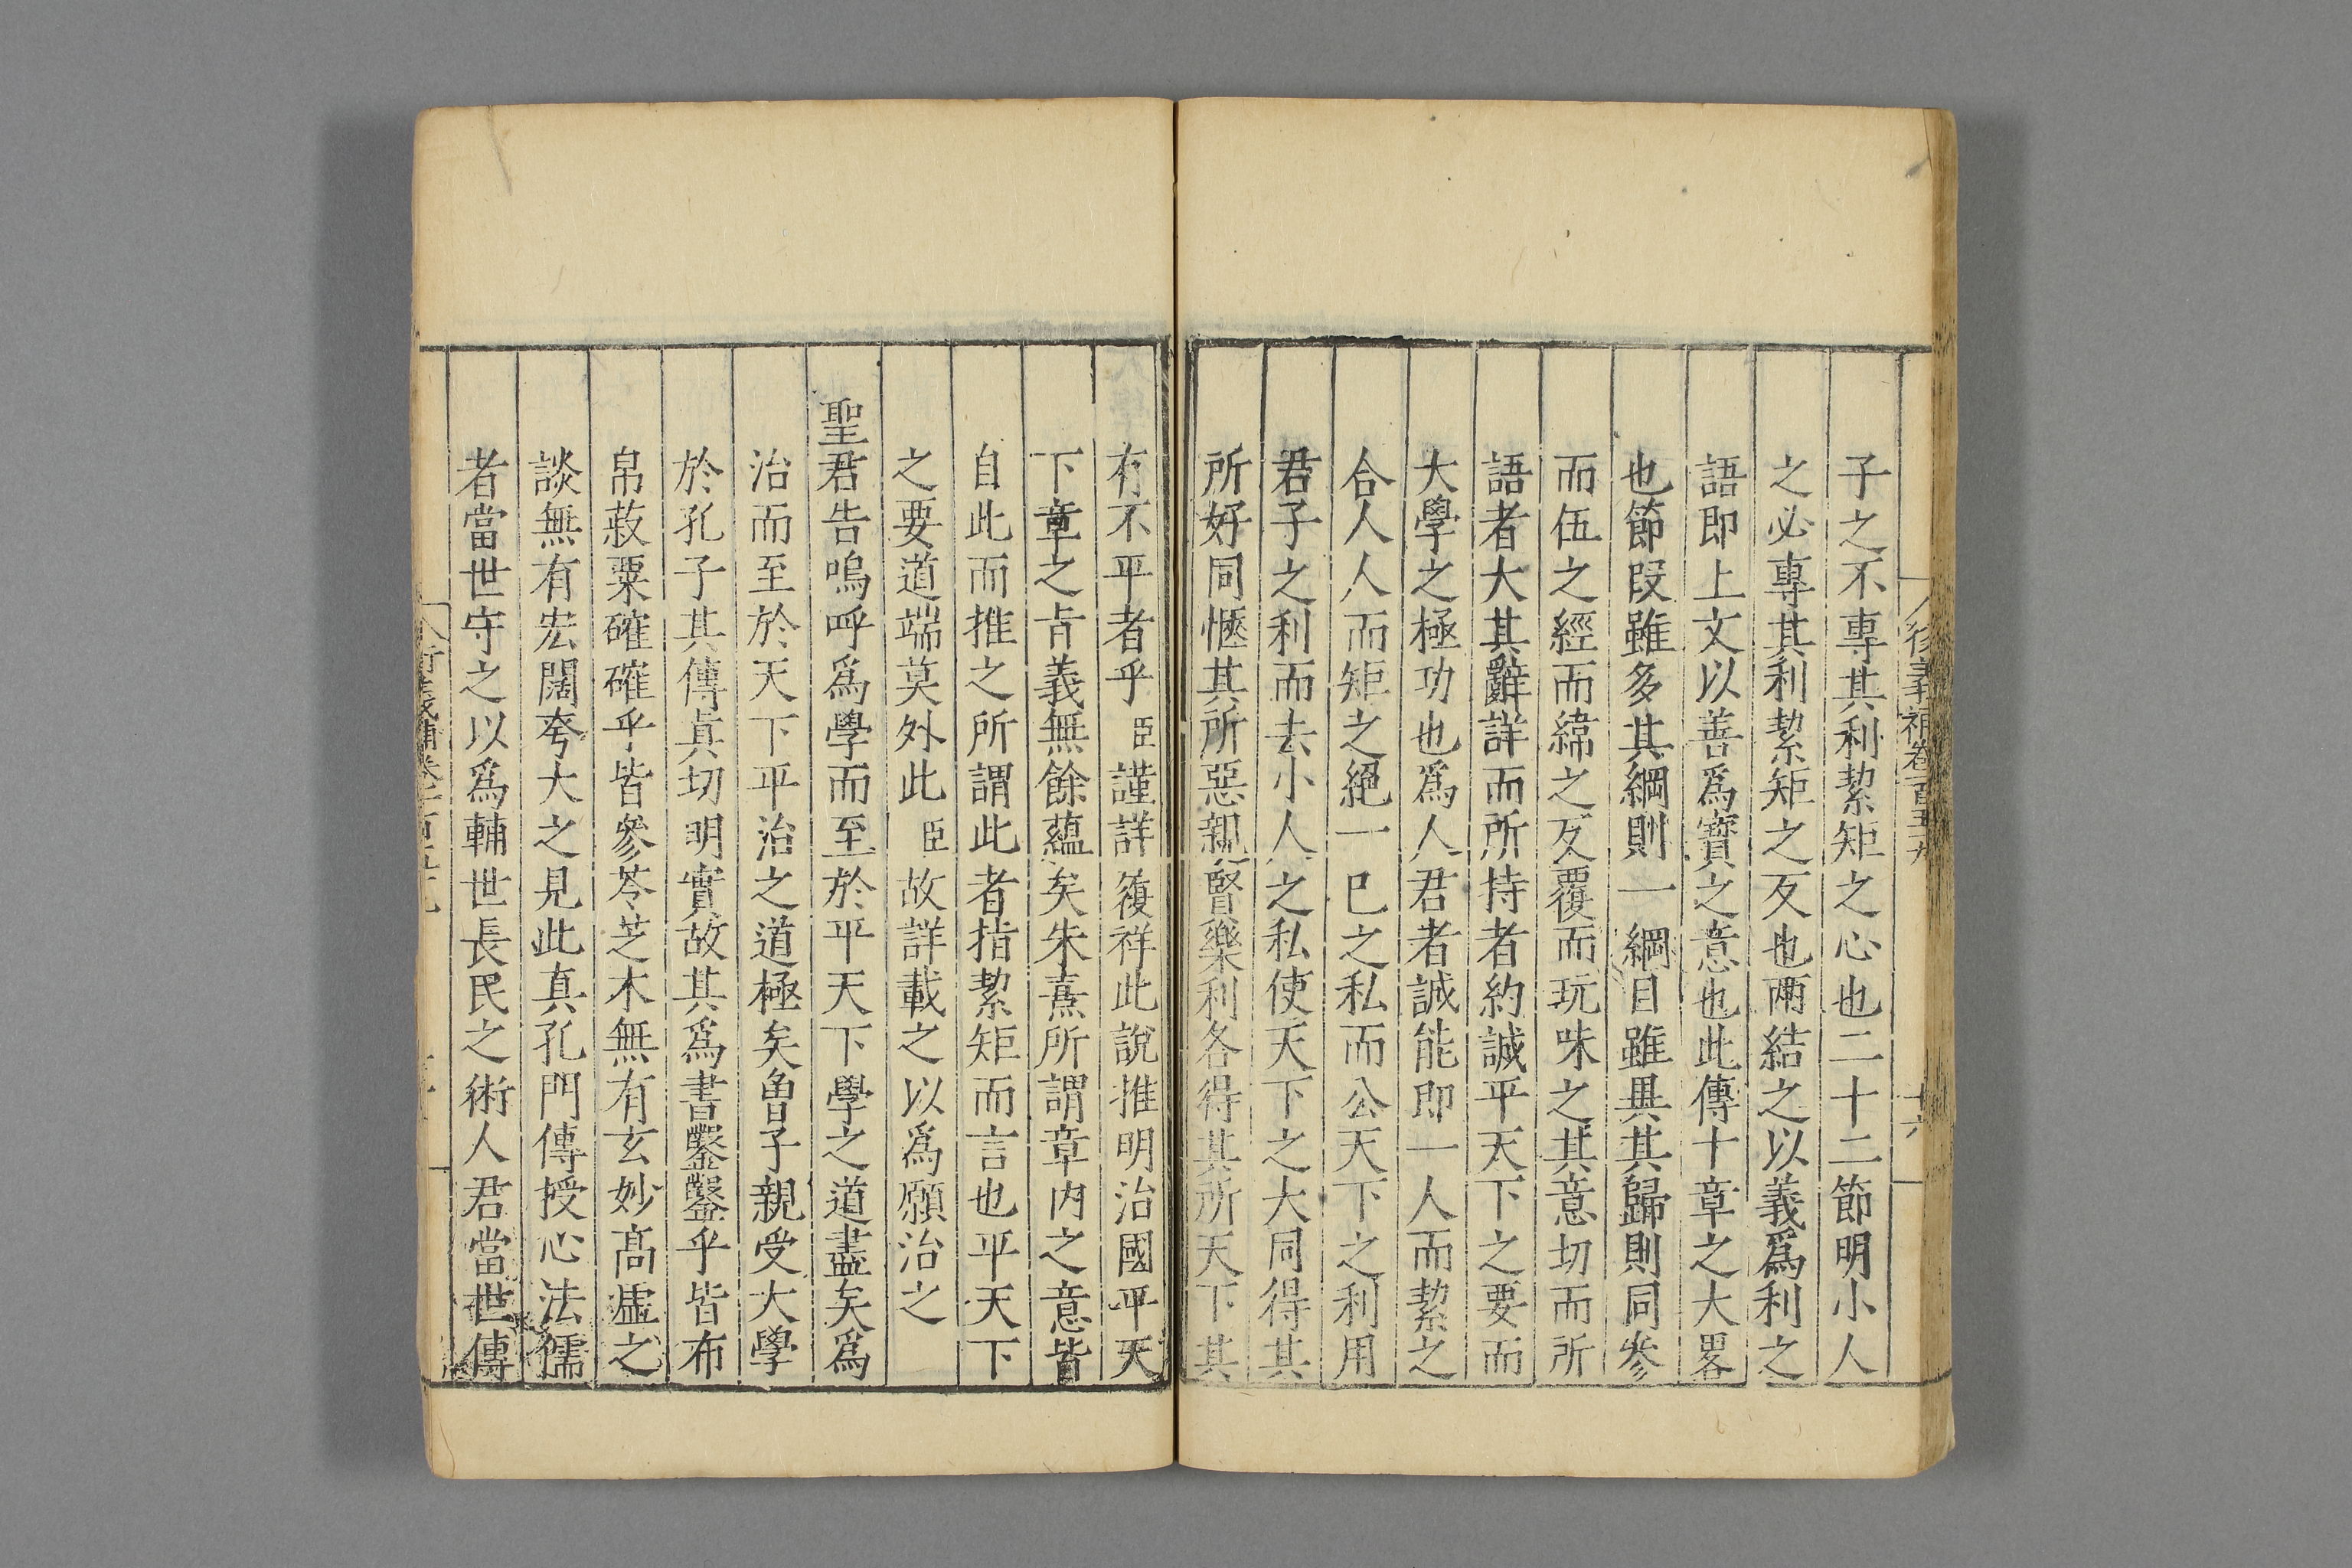 子之不專其利絜矩之心也二十二節明小人
之必專其利絜矩之反也兩結之以義爲利之
語即上文以善爲寶之意也此傳十章之大畧
也節段雖多其綱則一綱目雖異其歸則同參
而伍之經而緯之反覆而玩味之其意切而所
語者大其辭詳而所持者約誠平天下之要而
大學之極功也爲人君者誠能即一人而絜之
合人人而矩之絕一已之私而公天下之利用
君子之利而去小人之私使天下之大同得其
所好同愜其所惡親賢樂利各得其所天下其
有不平者乎臣謹詳復祥此說推明治國平天
下章之㫖義無餘蘊矣朱熹所謂章内之意皆
自此而推之所謂此者指絜矩而言也平天下
之要道端莫外此臣故詳載之以爲願治之
聖君告嗚呼爲學而至於平天下學之道盡矣爲
治而至於天下平治之道極矣魯子親受大學
於孔子其傳眞切明實故其爲書鑿鑿乎皆布
帛菽粟確確乎皆參苓芝术無有玄妙髙虛之
談無有宏闊夸大之見此真孔門傳授心法儒
者當世守之以爲輔世長民之術人君當世傳